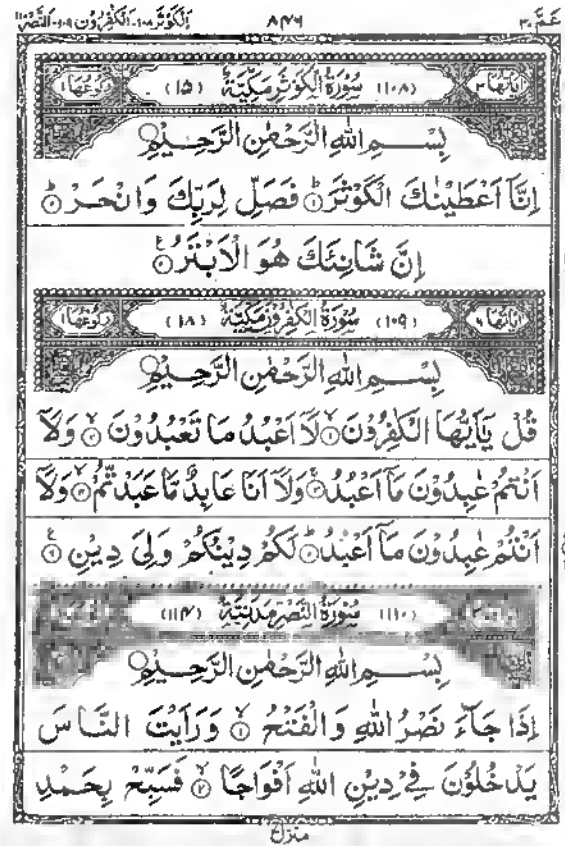 عَمَّ ٣٠ ٨٤٦ اَلْكَوْثَر ١٠٨، اَلْكٰفِرُوْن ١٠٩، اَلنَّصْر ١١٠
اٰيَاتُهَا ٣ (١٠٨) سُوْرَةُ الْكَوْثَرِ مَكِّيَّةٌ (١٥) رُكُوْعُهَا ١
بِسْمِ اللّٰهِ الرَّحْمٰنِ الرَّحِيْمِ
اِنَّاۤ اَعْطَيْنٰكَ الْكَوْثَرَ ؕ﴿١﴾ فَصَلِّ لِرَبِّكَ وَانْحَرْ ؕ﴿٢﴾
اِنَّ شَانِئَكَ هُوَ الْاَبْتَرُ ﴿٣﴾
اٰيَاتُهَا ٦ (١٠٩) سُوْرَةُ الْكٰفِرُوْنَ مَكِّيَّةٌ (١٨) رُكُوْعُهَا ١
بِسْمِ اللّٰهِ الرَّحْمٰنِ الرَّحِيْمِ
قُلْ يٰۤاَيُّهَا الْكٰفِرُوْنَ ۙ﴿١﴾ لَاۤ اَعْبُدُ مَا تَعْبُدُوْنَ ۙ﴿٢﴾ وَلَاۤ
اَنْتُمْ عٰبِدُوْنَ مَاۤ اَعْبُدُ ۚ﴿٣﴾ وَلَاۤ اَنَا عَابِدٌ مَّا عَبَدْتُّمْ ۙ﴿٤﴾ وَلَاۤ
اَنْتُمْ عٰبِدُوْنَ مَاۤ اَعْبُدُ ؕ﴿٥﴾ لَكُمْ دِيْنُكُمْ وَلِيَ دِيْنِ ﴿٦﴾
(١١٠) سُوْرَةُ النَّصْرِ مَدَنِيَّةٌ (١١٤)
بِسْمِ اللّٰهِ الرَّحْمٰنِ الرَّحِيْمِ
اِذَا جَآءَ نَصْرُ اللّٰهِ وَالْفَتْحُ ۙ﴿١﴾ وَرَاَيْتَ النَّاسَ
يَدْخُلُوْنَ فِيْ دِيْنِ اللّٰهِ اَفْوَاجًا ۙ﴿٢﴾ فَسَبِّحْ بِحَمْدِ
منزل